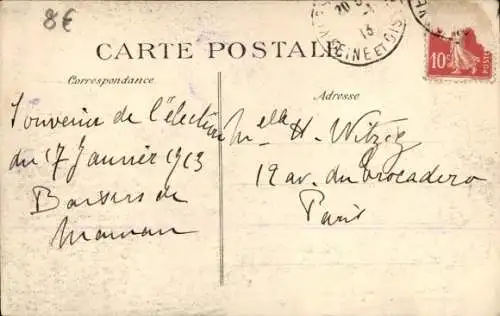 8€
CARTE POSTALE
Correspondance
Adresse
Souvenir de l'élection
du 17 Janvier 1913
Baisers de
Maman
Melle H. Witzig
12 av. du Trocadero
Paris
20
13
SEINE ET OISE
10c
POSTES